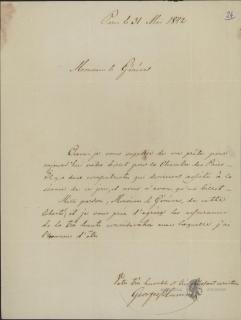 Paris le 31 Mai 1872
26
Monsieur le Général
Oserai-je vous supplier de me prêter pour
aujourd'hui votre billet pour la Chambre des Pairs
deux compatriotes qui devraient assister à la
séance de ce jour, et nous n'avons qu'un billet.
Mille pardon, Monsieur le Général, de cette
liberté, et je vous prie d'agréer les assurances
de la très haute considération avec laquelle j'ai
l'honneur d'être
Votre très humble et très obéissant serviteur
Georges